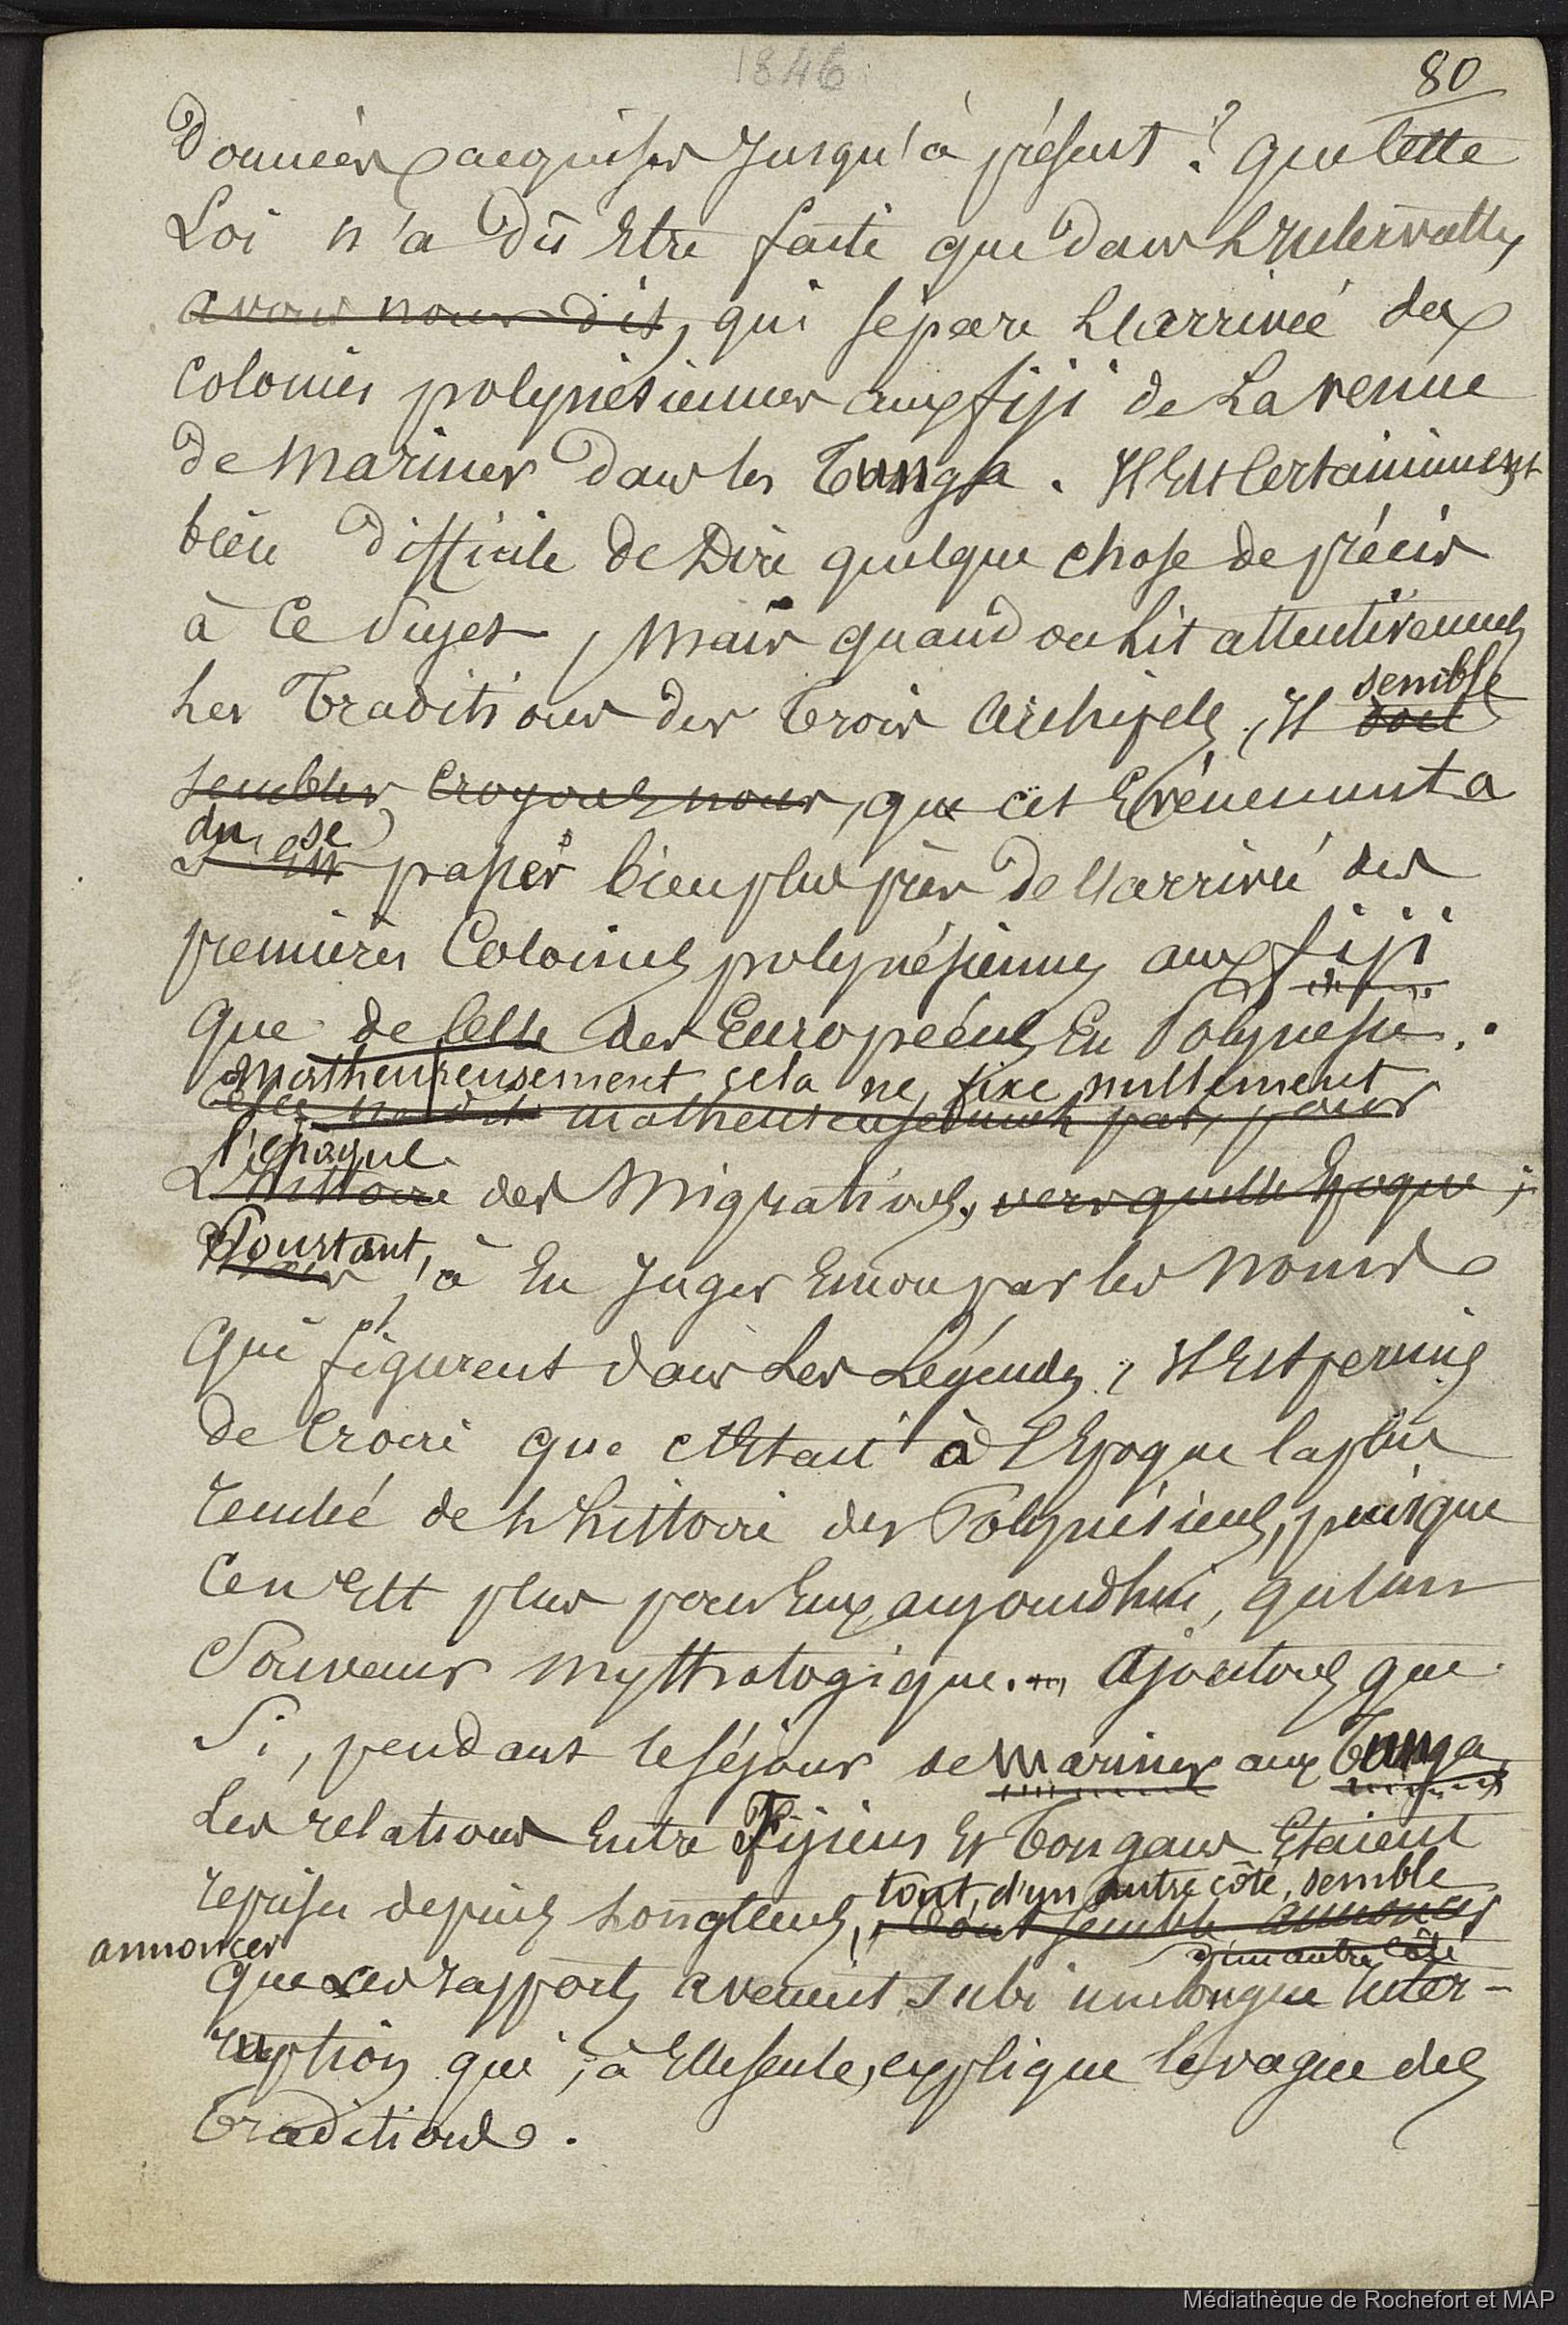 1846
80
données acquises jusqu'à présent ? que cette
Loi n'a dû Etre faite que dans L'Intervalle,
avons nous dit, qui sépare L'arrivée des
colonies polynésiennes aux fiji de La venue
de Mariner dans les Tunga. Il Est Certainement
bien difficile de Dire quelque chose de précis
à Ce Sujet, Mais quand on Lit attentivement
semble
Les Traditions des Trois Archipels, Il doit
sembler croyons nous, que cet Evènement a
du se
s'est passer bien plus près de L'arrivée des
premières Colonies polynésiennes aux fiji
que de Celle des Européens En Polynésie.
Malheureusement cela ne fixe nullement
malheureusement pas, pour
l'époque
L'histoire des Migrations, vers quelle Epoque ;
Pourtant,
Mais, à En Juger Sinon par les Noms
Qui figurent dans Les Légendes, Il Est permis
de Croire que C'Etait à l'Epoque la plus
reculée de L'histoire des Polynésiens, puisque
Ce n'Est plus pour Eux aujourdhui, qu'un
Souvenir Mythologique. Ajoutons que
Si, pendant le séjour de Mariner aux Tunga,
Les relations Entre Fijiens Et Tongans Etaient
tout, d'un autre côté, semble
reprises depuis Longtems, tout semble annoncer
annoncer
d'un autre côté
que ces rapports avaient subi une longue Inter-
ruption qui, à Elle seule, explique le vague des
Traditions.
Médiathèque de Rochefort et MAP